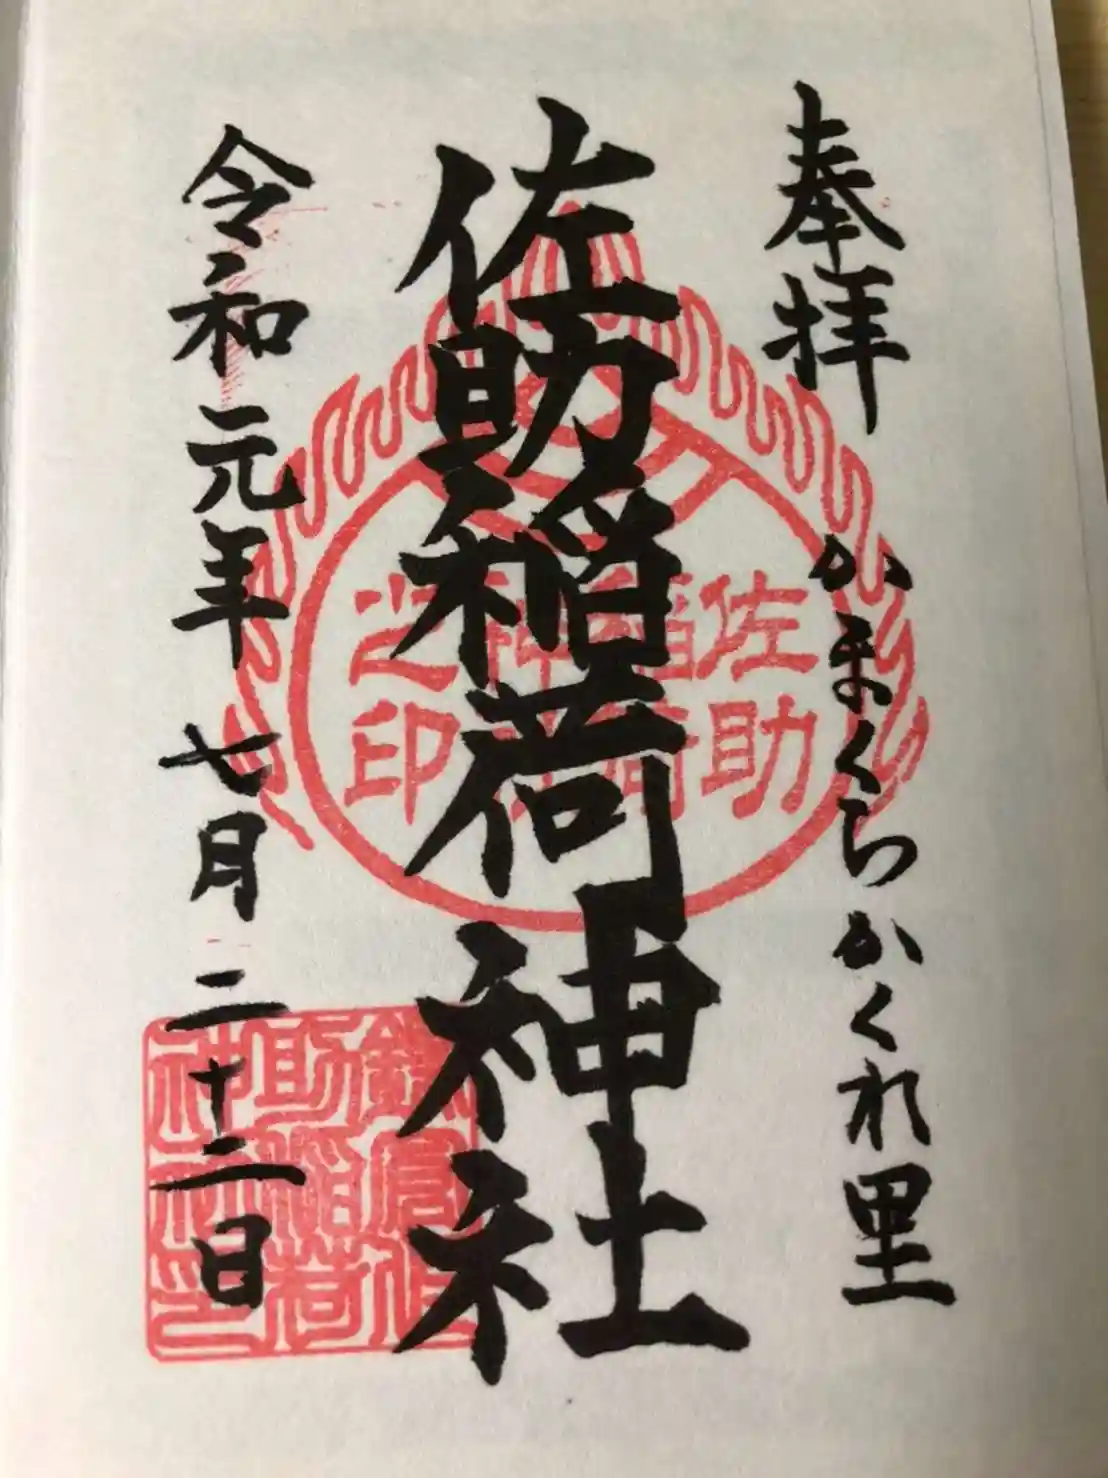 奉拝
かまくらかくれ里
佐助稲荷神社
令和元年七月二十二日
佐助
稲荷
神社
之印
鎌倉佐
助稲荷
神社之印